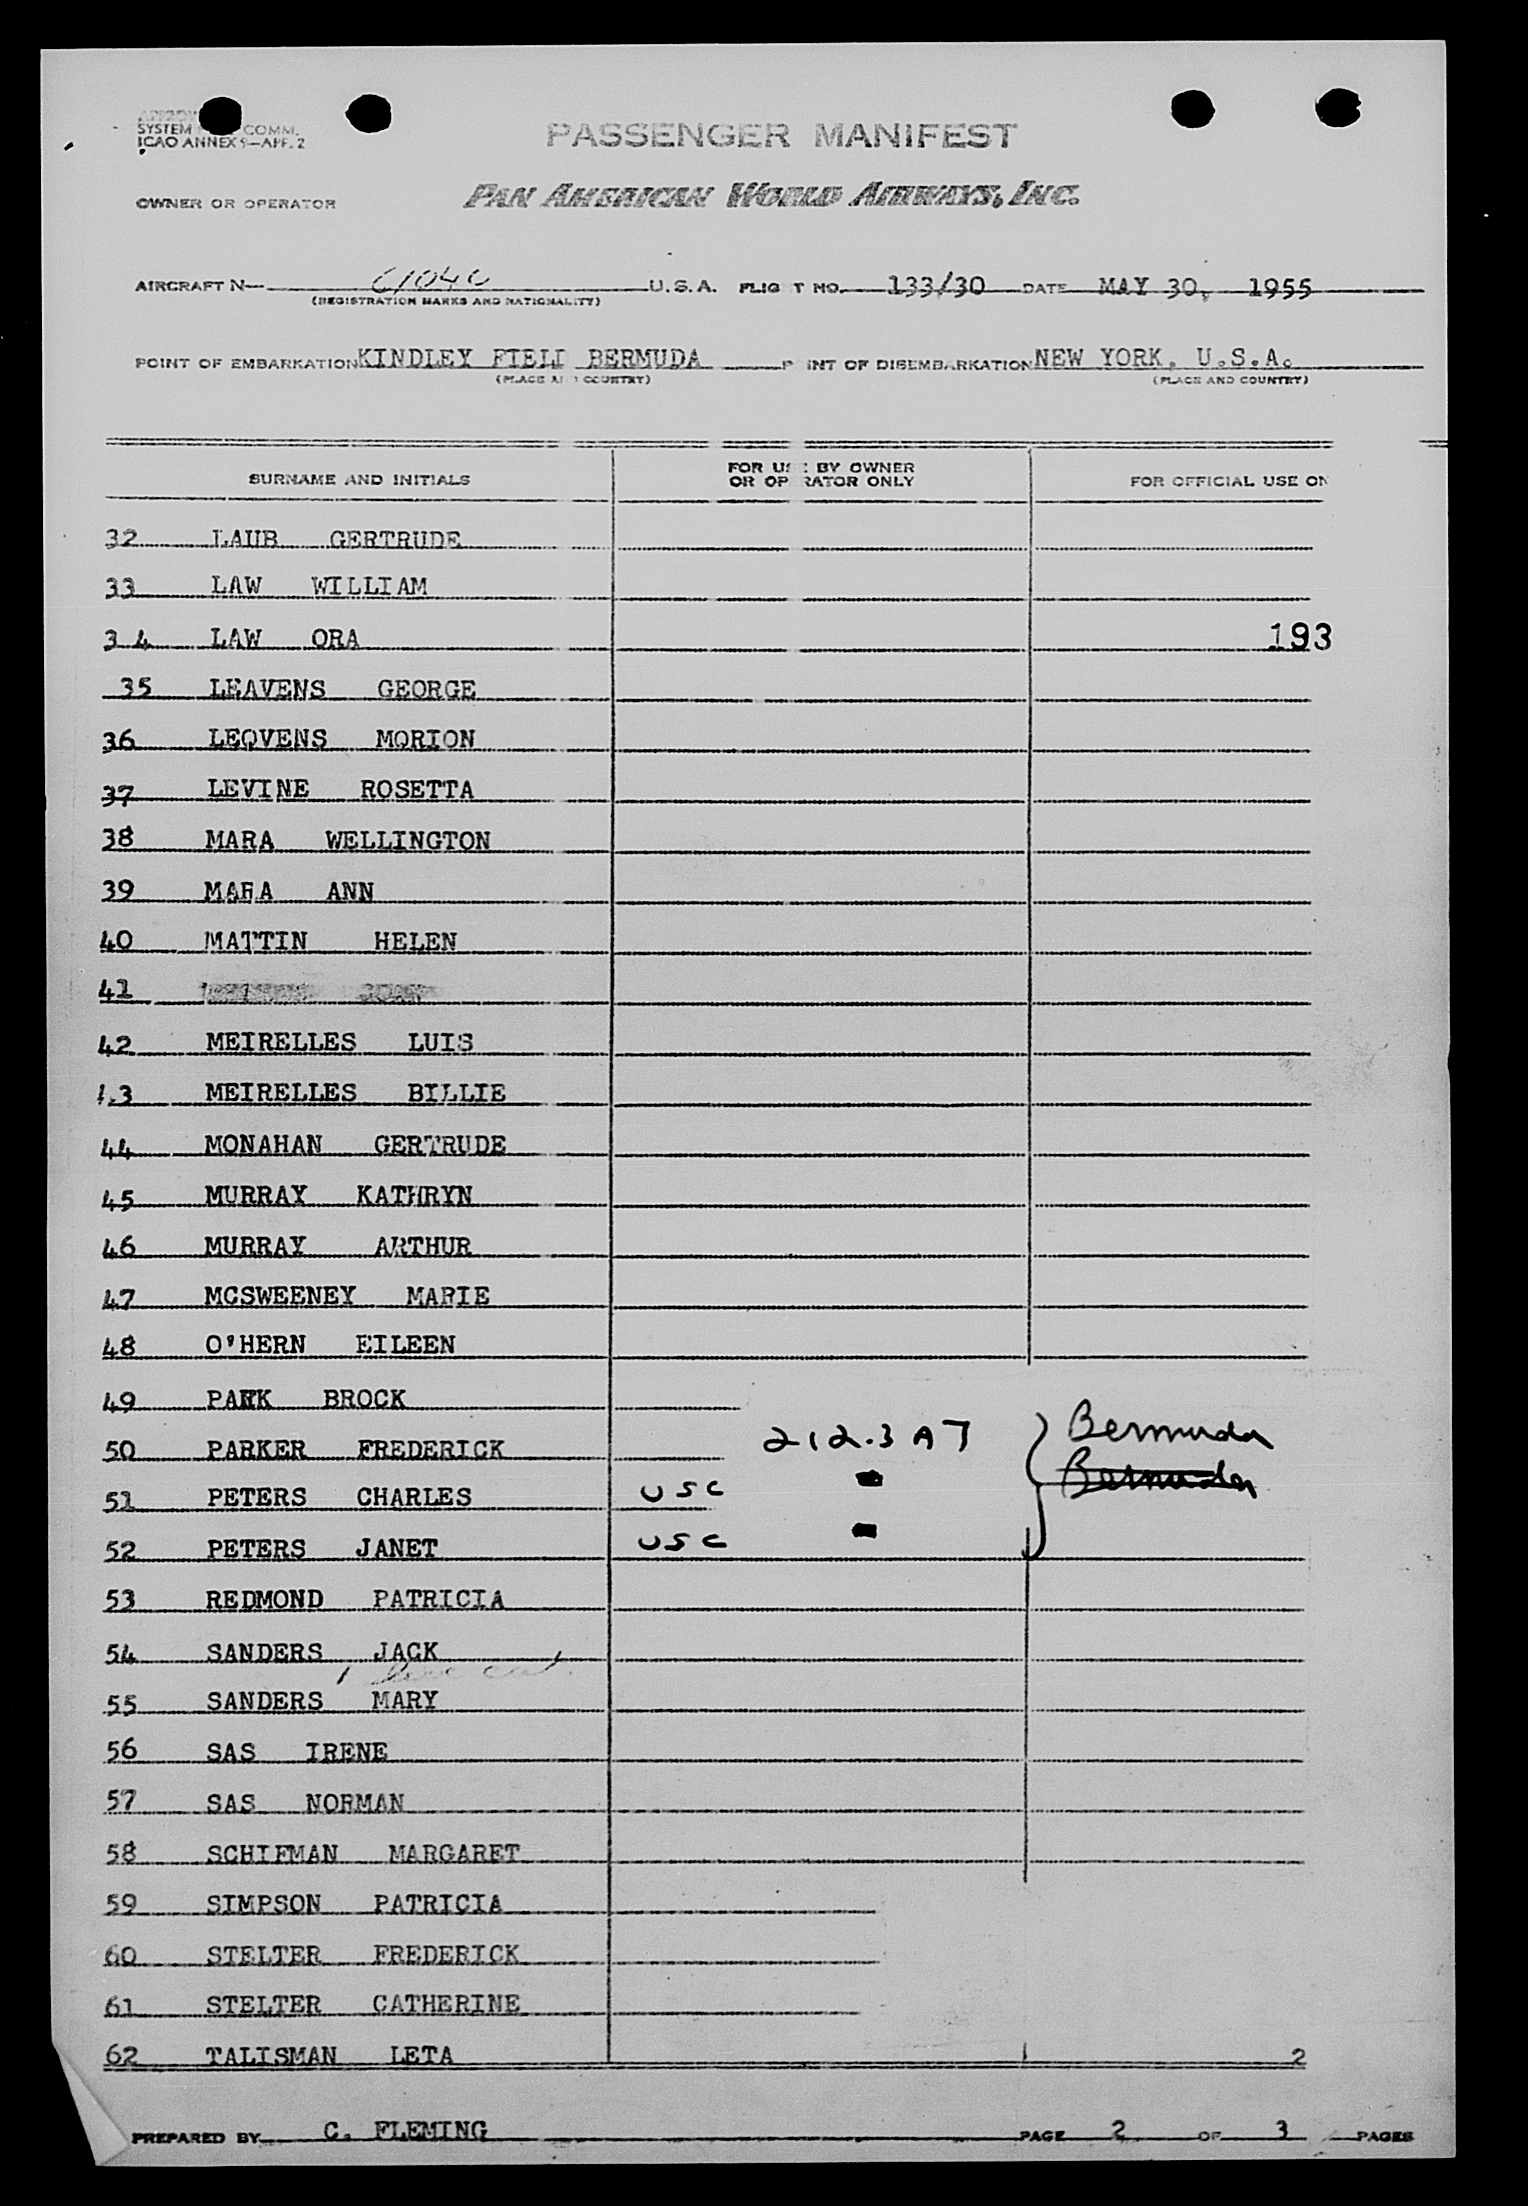 SYSTEM COMM.
ICAO ANNEX 9—APP. 2
PASSENGER MANIFEST
OWNER OR OPERATOR PAN AMERICAN WORLD AIRWAYS, INC.
AIRCRAFT N— 6104C U.S.A. FLIG T NO. 133/30 DATE MAY 30, 1955
(REGISTRATION MARKS AND NATIONALITY)
POINT OF EMBARKATION KINDLEY FIELD BERMUDA P INT OF DISEMBARKATION NEW YORK, U.S.A.
(PLACE AND COUNTRY) (PLACE AND COUNTRY)
SURNAME AND INITIALS FOR USE BY OWNER OR OP RATOR ONLY FOR OFFICIAL USE ON
32 LAUB GERTRUDE
33 LAW WILLIAM
34 LAW ORA 193
35 LEAVENS GEORGE
36 LEQVENS MQRION
37 LEVINE ROSETTA
38 MARA WELLINGTON
39 MARA ANN
40 MATTIN HELEN
41
42 MEIRELLES LUIS
43 MEIRELLES BILLIE
44 MONAHAN GERTRUDE
45 MURRAY KATHRYN
46 MURRAY ARTHUR
47 MCSWEENEY MARIE
48 O'HERN EILEEN
49 PARK BROCK
50 PARKER FREDERICK 212.3 A7 Bermuda
51 PETERS CHARLES USC Bermuda
52 PETERS JANET USC
53 REDMOND PATRICIA
54 SANDERS JACK
55 SANDERS MARY
56 SAS IRENE
57 SAS NORMAN
58 SCHIFMAN MARGARET
59 SIMPSON PATRICIA
60 STELTER FREDERICK
61 STELTER CATHERINE
62 TALISMAN LETA 2
PREPARED BY C. FLEMING PAGE 2 OF 3 PAGES